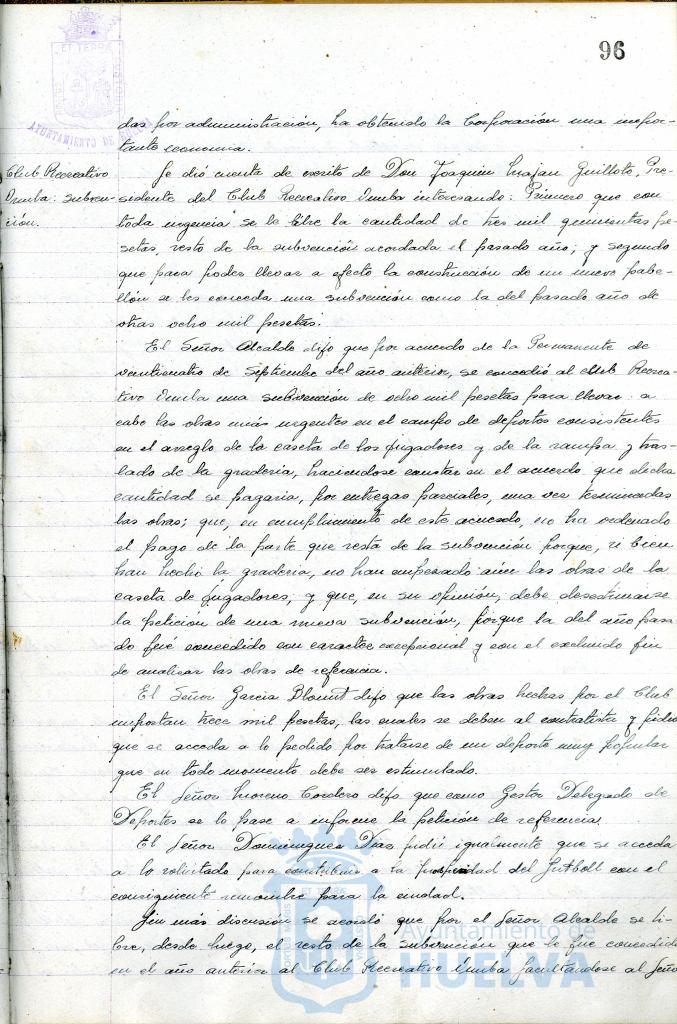 96
das por administración, ha obtenido la Corporación una impor-
tante economía.
Club Recreativo
Onuba: Subven-
ción.
Se dió cuenta de escrito de Don Joaquin Guillote, Pre-
sidente del Club Recreativo Onuba interesando: Primero que con
toda urgencia se le libre la cantidad de tres mil quinientas pe-
setas, resto de la subvención acordada el pasado año; y segundo
que para poder llevar a efecto la construcción de un nuevo pabe-
llón se les conceda una subvención como la del pasado año de
otras ocho mil pesetas.
El Señor Alcalde dijo que por acuerdo de la Permanente de
veinticuatro de Septiembre del año anterior, se concedió al Club Recrea-
tivo Onuba una subvención de ocho mil pesetas para llevar a
cabo las obras más urgentes en el campo de deportes consistentes
en el arreglo de la caseta de los jugadores y de la rampa y tras-
lado de la gradería, haciendose constar en el acuerdo que dicha
cantidad se pagaría, por entregas parciales, una vez terminadas
las obras; que, en cumplimiento de este acuerdo, no ha ordenado
el pago de la parte que resta de la subvención porque, si bien
han hecho la gradería, no han empezado aún las obras de la
caseta de jugadores, y que, en su opinión, debe desestimarse
la petición de una nueva subvención, porque la del año pasa
do fué concedido con caracter excepcional y con el exclusivo fin
de analizar las obras de referencia.
El Señor Garcia Blount dijo que las obras hechas por el Club
importan trece mil pesetas, las cuales se deben al contratista y pidió
que se acceda a lo pedido por tratarse de un deporte muy popular
que en todo momento debe ser estimulado.
El Señor Moreno Cordero dijo que como Gestor Delegado de
Deportes se le pase a informe la petición de referencia.
El Señor Dominguez Diaz pidió igualmente que se acceda
a lo solicitado para contribuir a la prosperidad del futboll con el
consiguiente renombre para la ciudad.
Sin más discusión se acordó que por el Señor Alcalde se li-
bre, desde luego, el resto de la subvención que le fue concedida
en el año anterior al Club Recreativo Onuba facultandose al Seño
Ayuntamiento de
HUELVA